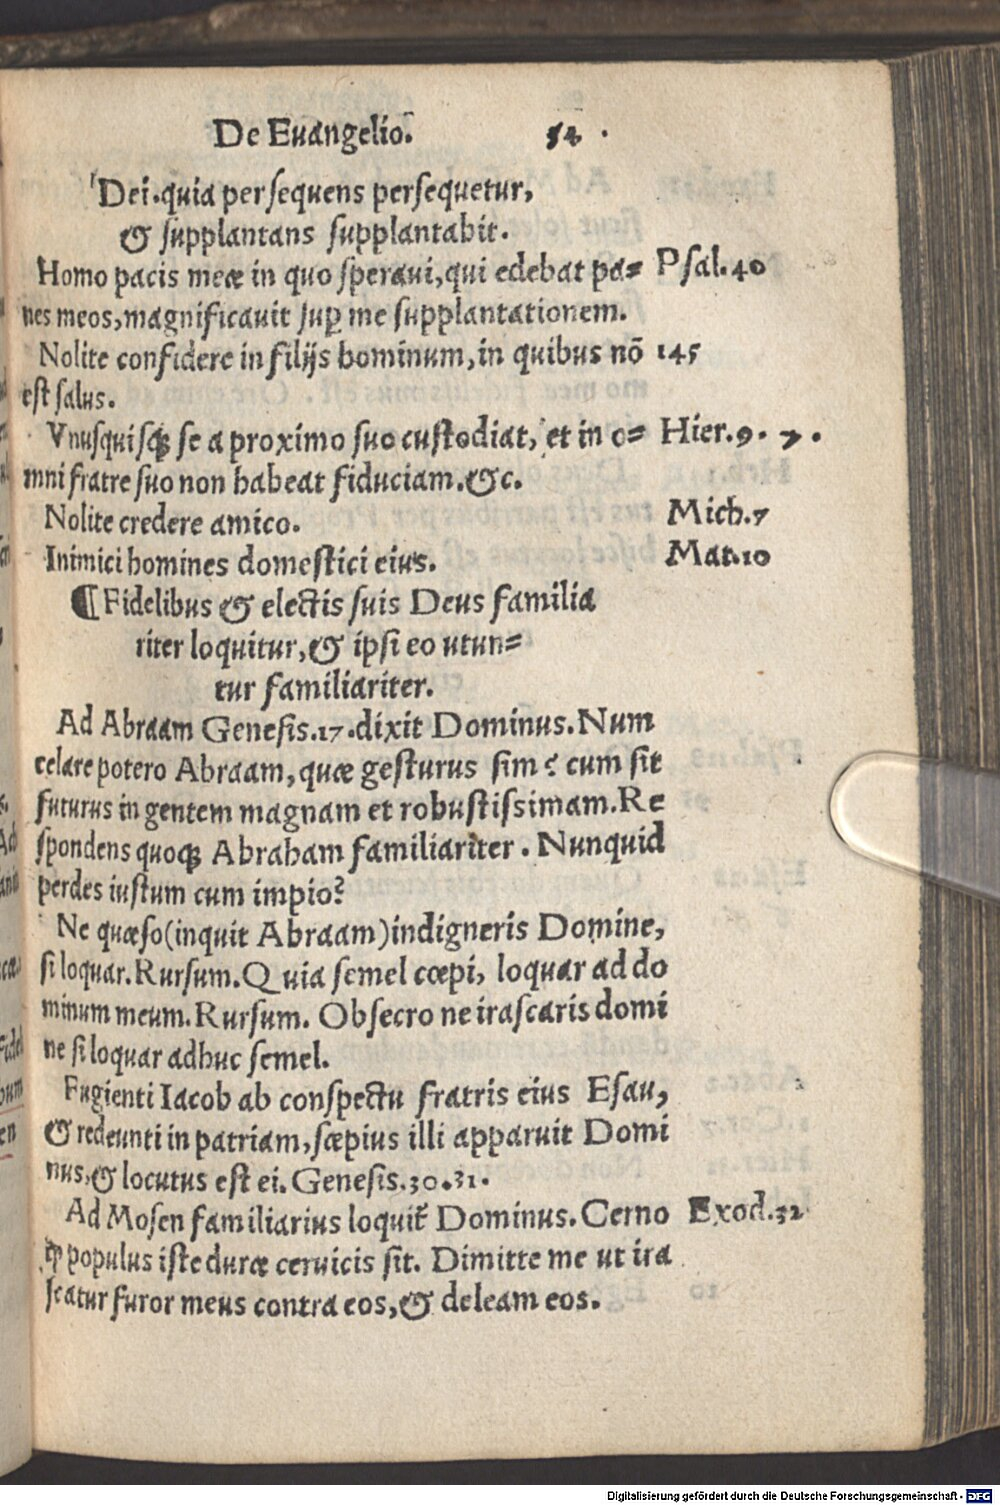 De Euangelio. 54 .
Dei.quia persequens persequetur,
& supplantans supplantabit.
Homo pacis meæ in quo speraui,qui edebat pa= Psal.40
nes meos,magnificauit sup̱ me supplantationem.
Nolite confidere in filijs hominum,in quibus nō 145
est salus.
Vnusquisq; se a proximo suo custodiat, et in o= Hier.9. 7.
mni fratre suo non habeat fiduciam.&c.
Nolite credere amico. Mich.7
Inimici homines domestici eius. Mat.10
¶Fidelibus & electis suis Deus familia
riter loquitur,& ipsi eo utun=
tur familiariter.
Ad Abraam Genesis.17.dixit Dominus.Num
celare potero Abraam,quæ gesturus sim? cum sit
futurus in gentem magnam et robustissimam.Re
spondens quoq; Abraham familiariter. Nunquid
perdes iustum cum impio?
Ne quæso(inquit Abraam)indigneris Domine,
si loquar.Rursum.Quia semel cœpi, loquar ad do
minum meum.Rursum. Obsecro ne irascaris domi
ne si loquar adhuc semel.
Fugienti Iacob ab conspectu fratris eius Esau,
& redeunti in patriam,sæpius illi apparuit Domi
nus,& locutus est ei.Genesis.30.31.
Ad Mosen familiarius loquit̄ Dominus.Cerno Exod.32
ꝙ populus iste duræ ceruicis sit. Dimitte me ut ira
scatur furor meus contra eos,& deleam eos.
Digitalisierung gefördert durch die Deutsche Forschungsgemeinschaft - DFG